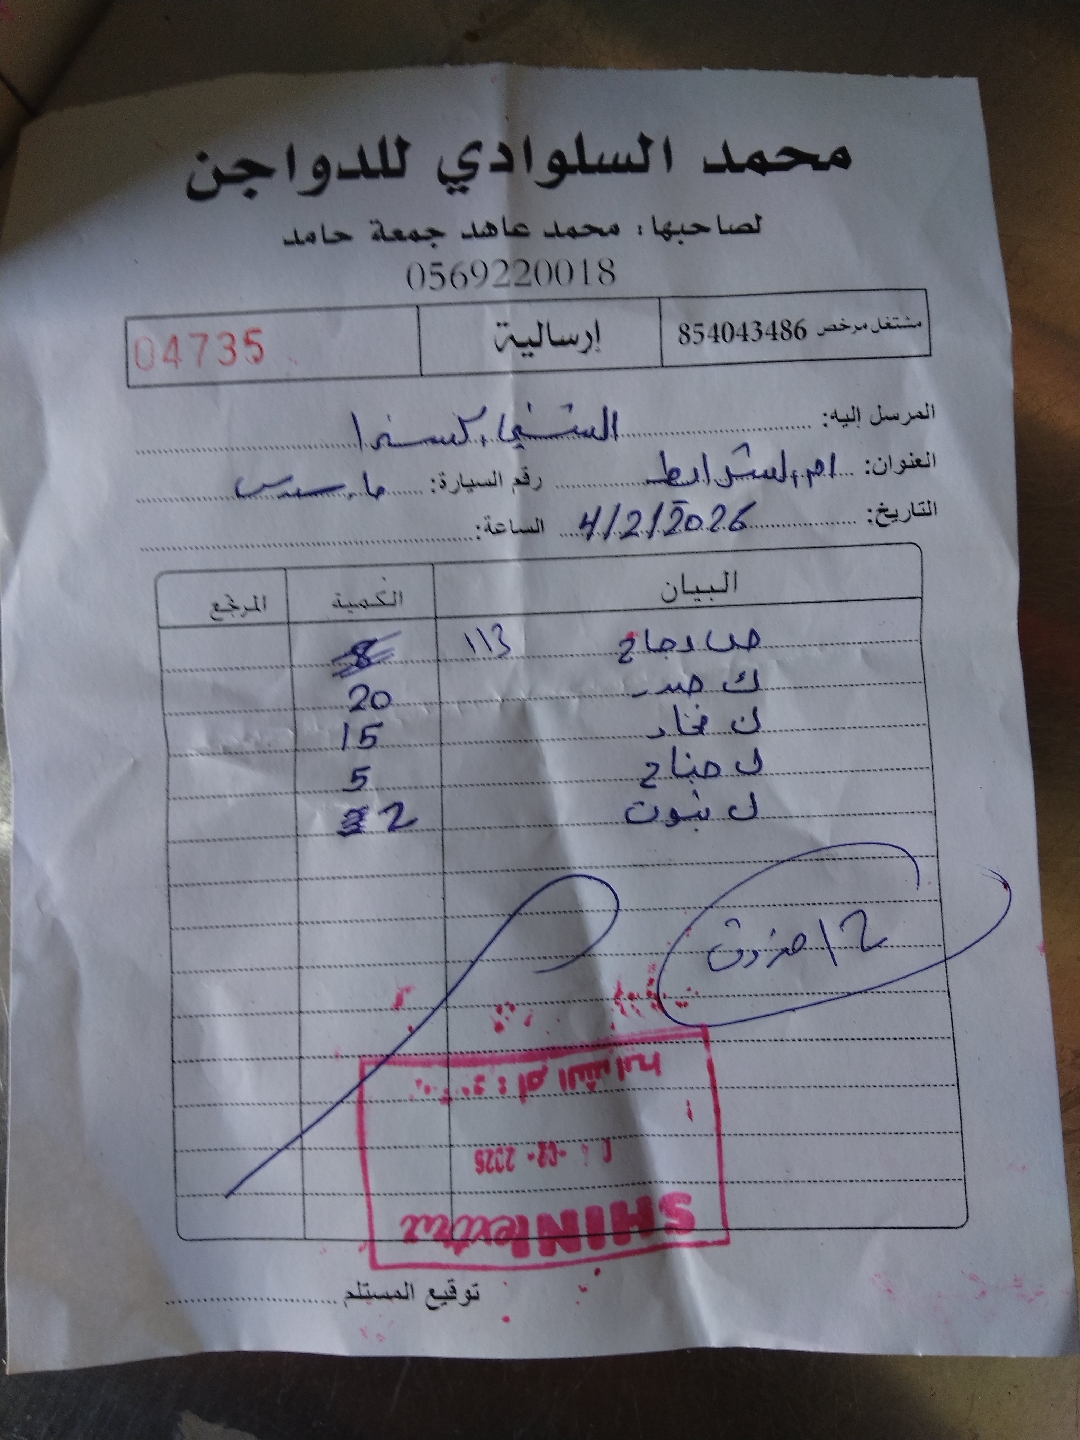 محمد السلوادي للدواجن
لصاحبها: محمد عاهد جمعة حامد
0569220018
مشتغل مرخص 854043486 إرسالية 04735
المرسل إليه:
العنوان: ام الشرايط رقم السيارة:
التاريخ: 4/2/2026 الساعة:
البيان الكمية المرتجع
دجاج 113 8
ك صدر 20
ك فخاد 15
ك جناح 5
ك 2
12 صندوق
ام الشرايط
-02- 2026
SHINI extra
توقيع المستلم